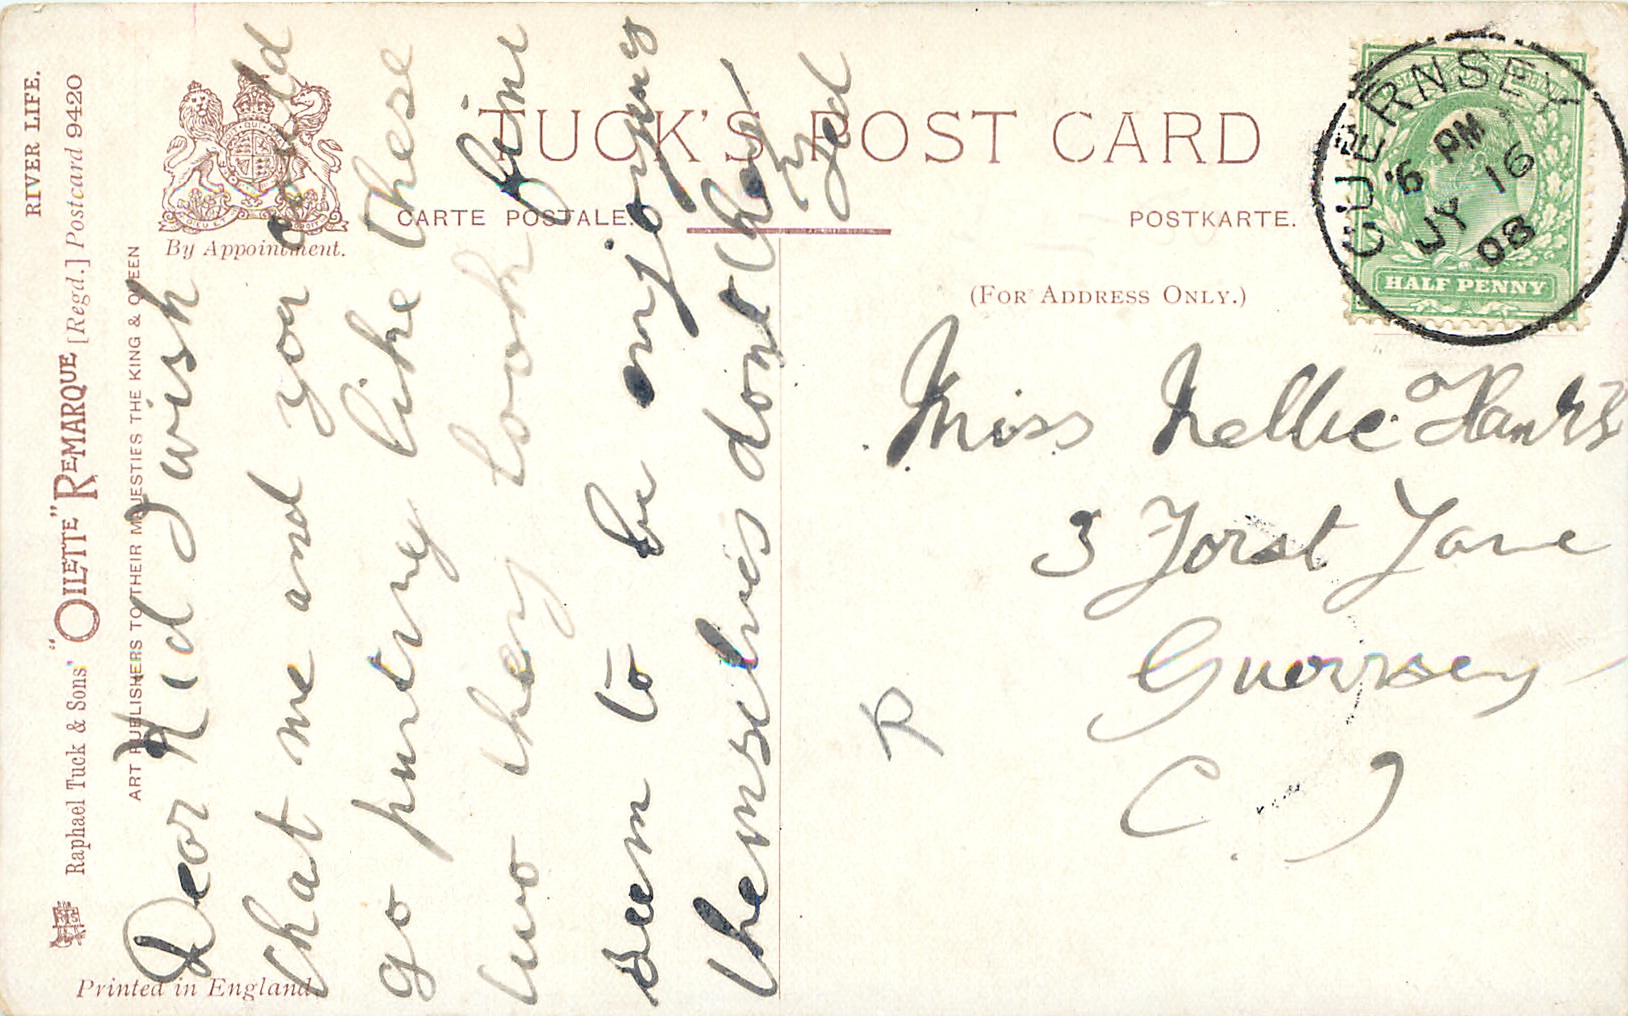 RIVER LIFE.
Raphael Tuck & Sons' "OILETTE" REMARQUE [Regd.] Postcard 9420
ART PUBLISHERS TO THEIR MAJESTIES THE KING & QUEEN
By Appointment.
Printed in England.
TUCK'S POST CARD
CARTE POSTALE.
POSTKARTE.
(FOR ADDRESS ONLY.)
GUERNSEY
6 PM
JY 16
08
HALF PENNY
Dear Kid I wish
that me and you could
go punting like these
two they look fine
seem to be enjoying
themselves dont they
Miss Nellie
3 Forest Lane
Guernsey
C. I